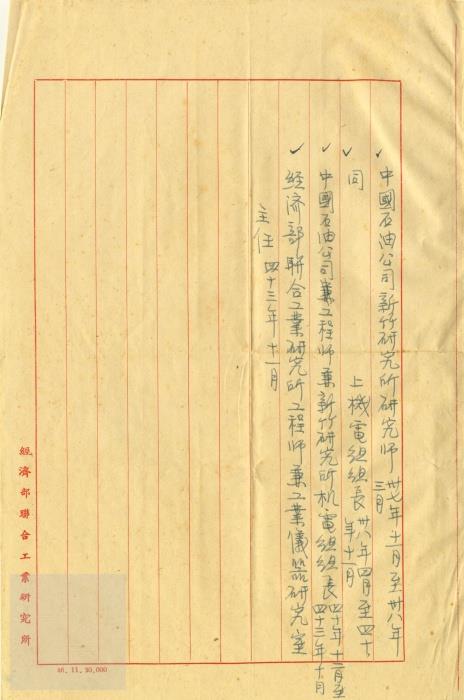 ✓中國石油公司新竹研究所研究師 卅七年十一月至卅八年三月
✓同 上機電組組長 卅八年四月至四十年十一月
✓中國石油公司兼工程师兼新竹研究所机電組組長 四十年十二月至四十三年十月
✓經濟部聯合工業研究所工程师兼工業儀器研究室
主任 四十三年十一月
經濟部聯合工業研究所
46. 11. 30,000